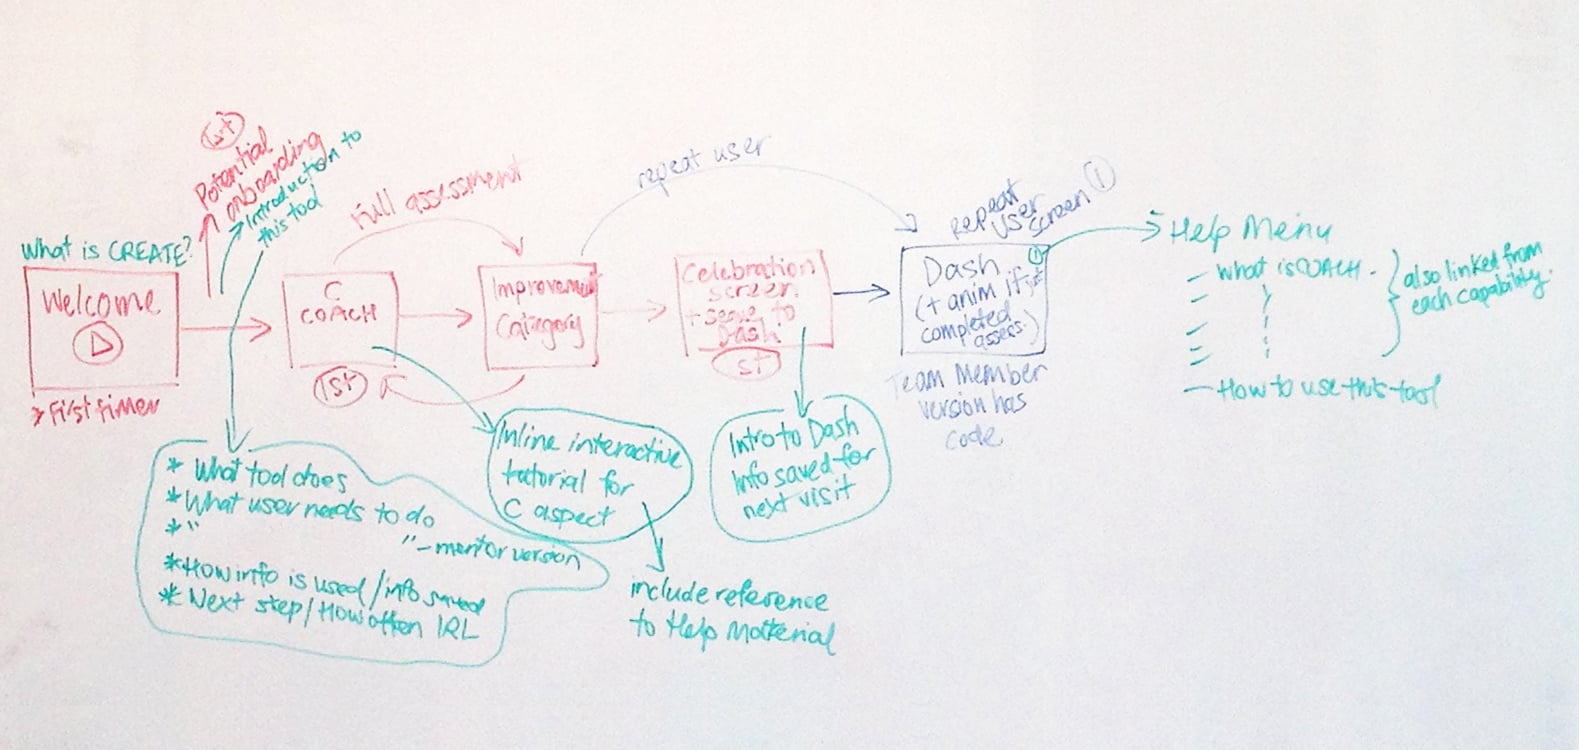 1st
Potential
onboarding
Introduction to
this tool
What is CREATE?
Welcome
* First timer
Full assessment
C
COACH
1st
Improvement
Category
repeat user
Celebration
screen.
+ serve to
Dash
st
Repeat
User
screen 1
Dash
(+ anim if just
completed
assess.)
Team Member
version has
code
Help Menu
- What is COACH.
-
-
-
-
- How to use this tool
also linked from
each capability.
* What tool does
* What user needs to do
* "
" - mentor version
* How info is used / info saved
* Next step / How often IRL
Inline interactive
tutorial for
C aspect
include reference
to Help Material
Intro to Dash
Info saved for
next visit